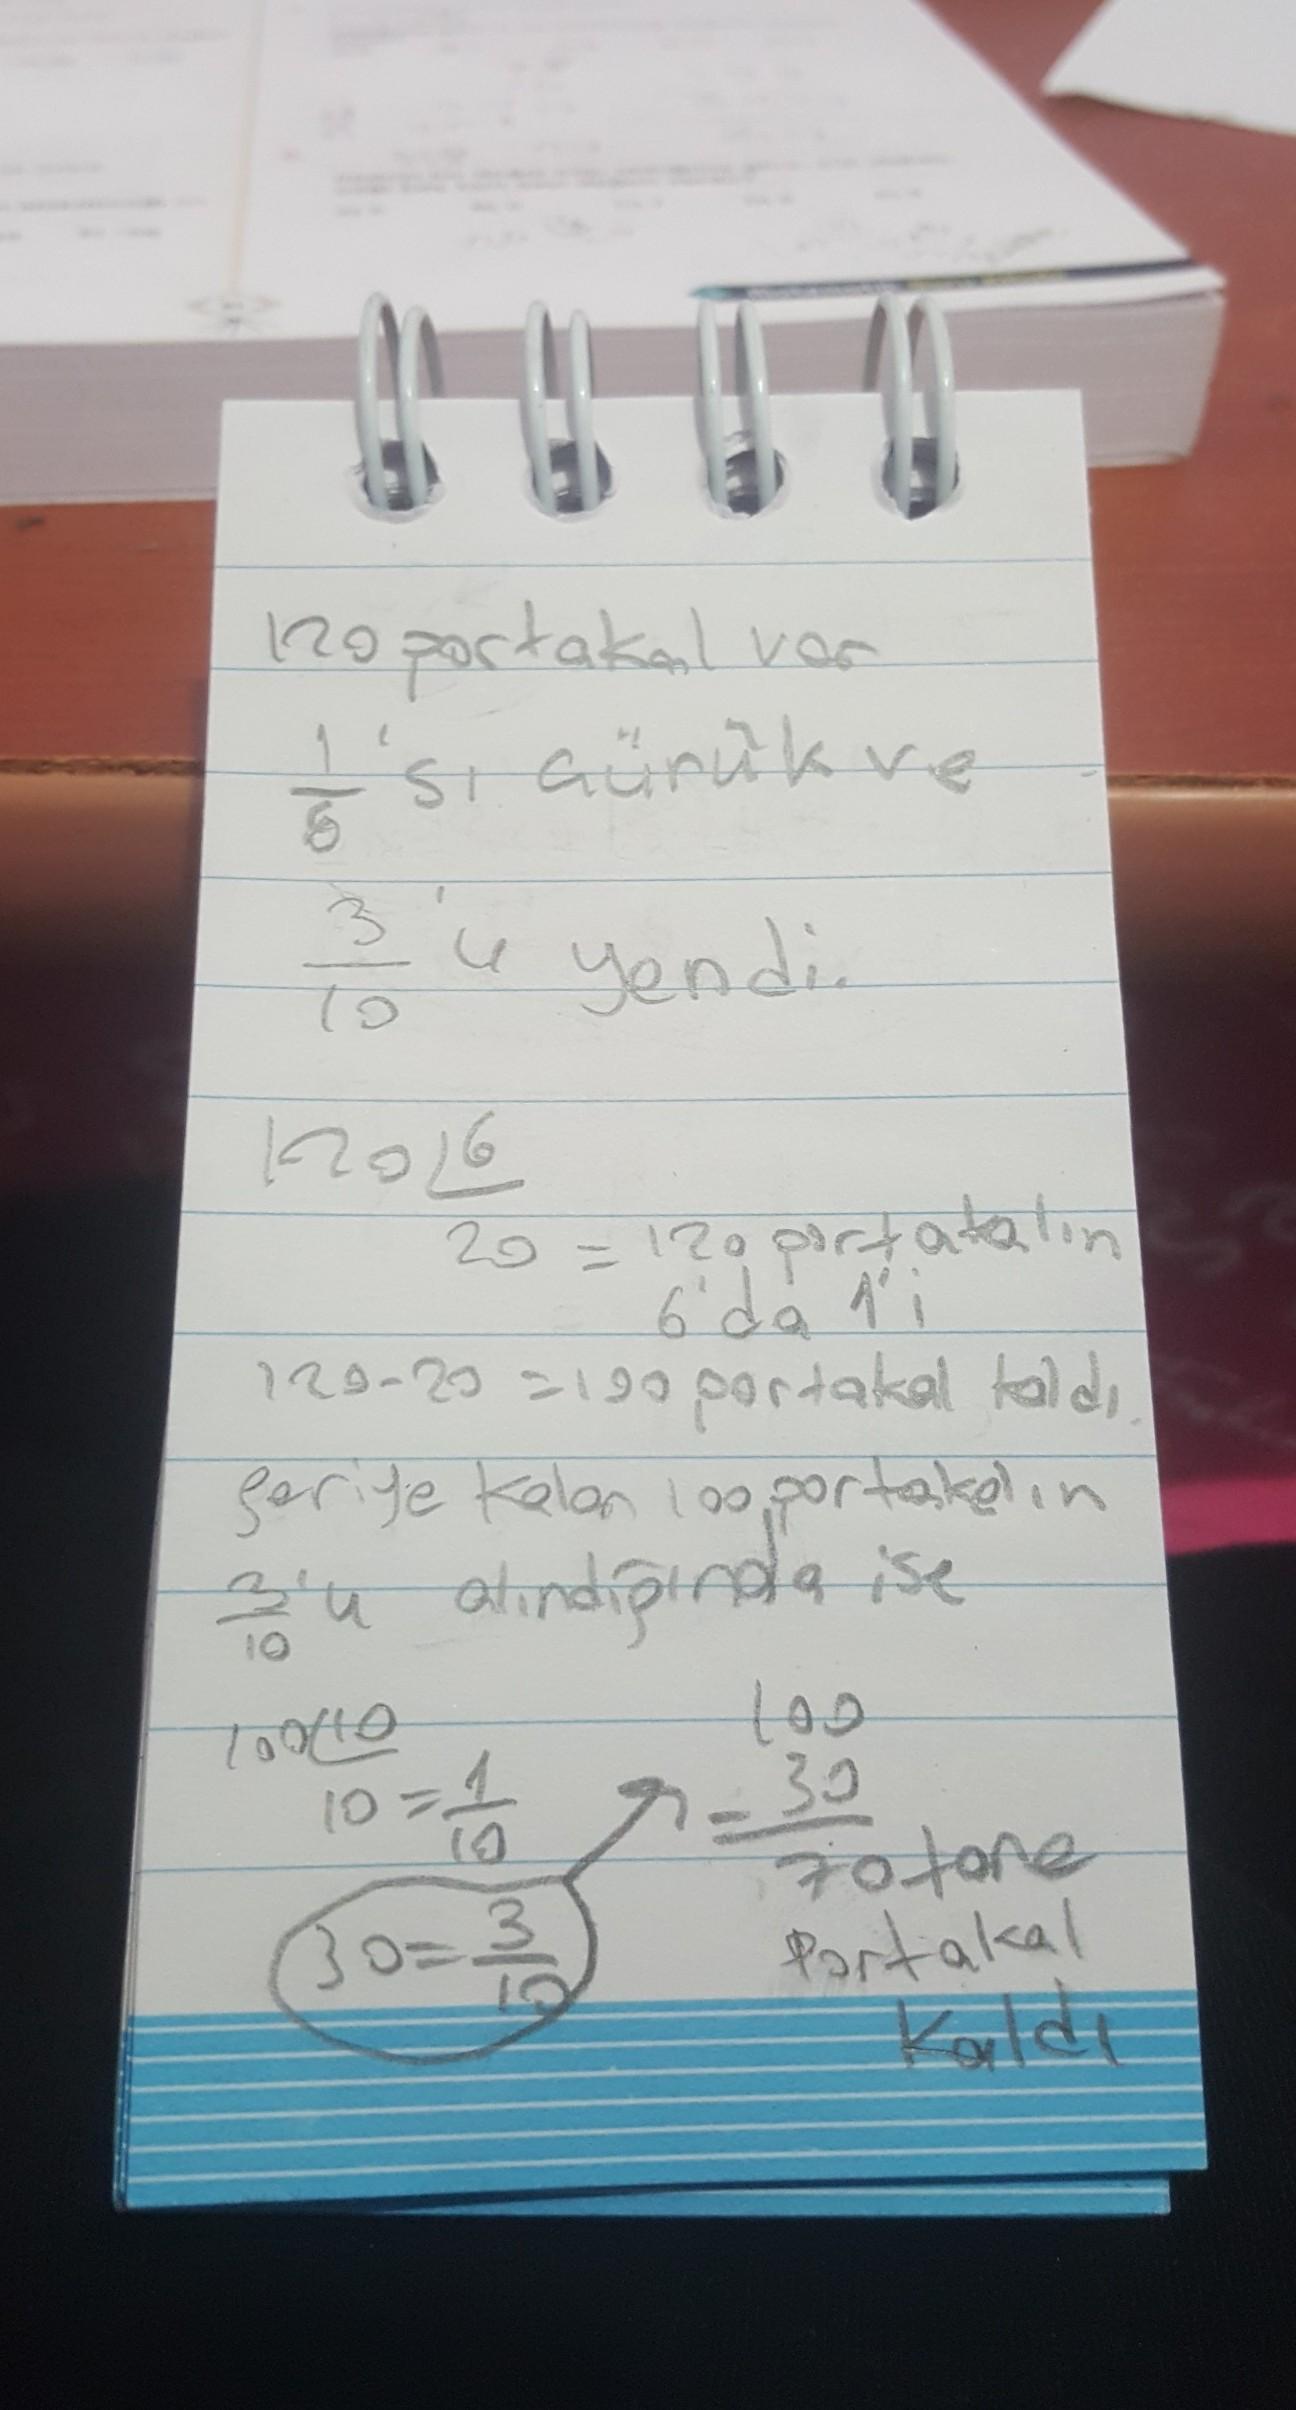 120 portakal var
1/6 'sı çürük ve
3/10 'u yendi.
120 | 6
20 = 120 portakalın
6'da 1'i
120-20 = 100 portakal kaldı.
geriye kalan 100 portakalın
3/10 'u alındığında ise
100 | 10
10 = 1/10
30 = 3/10
100
- 30
70 tane
Portakal
Kaldı